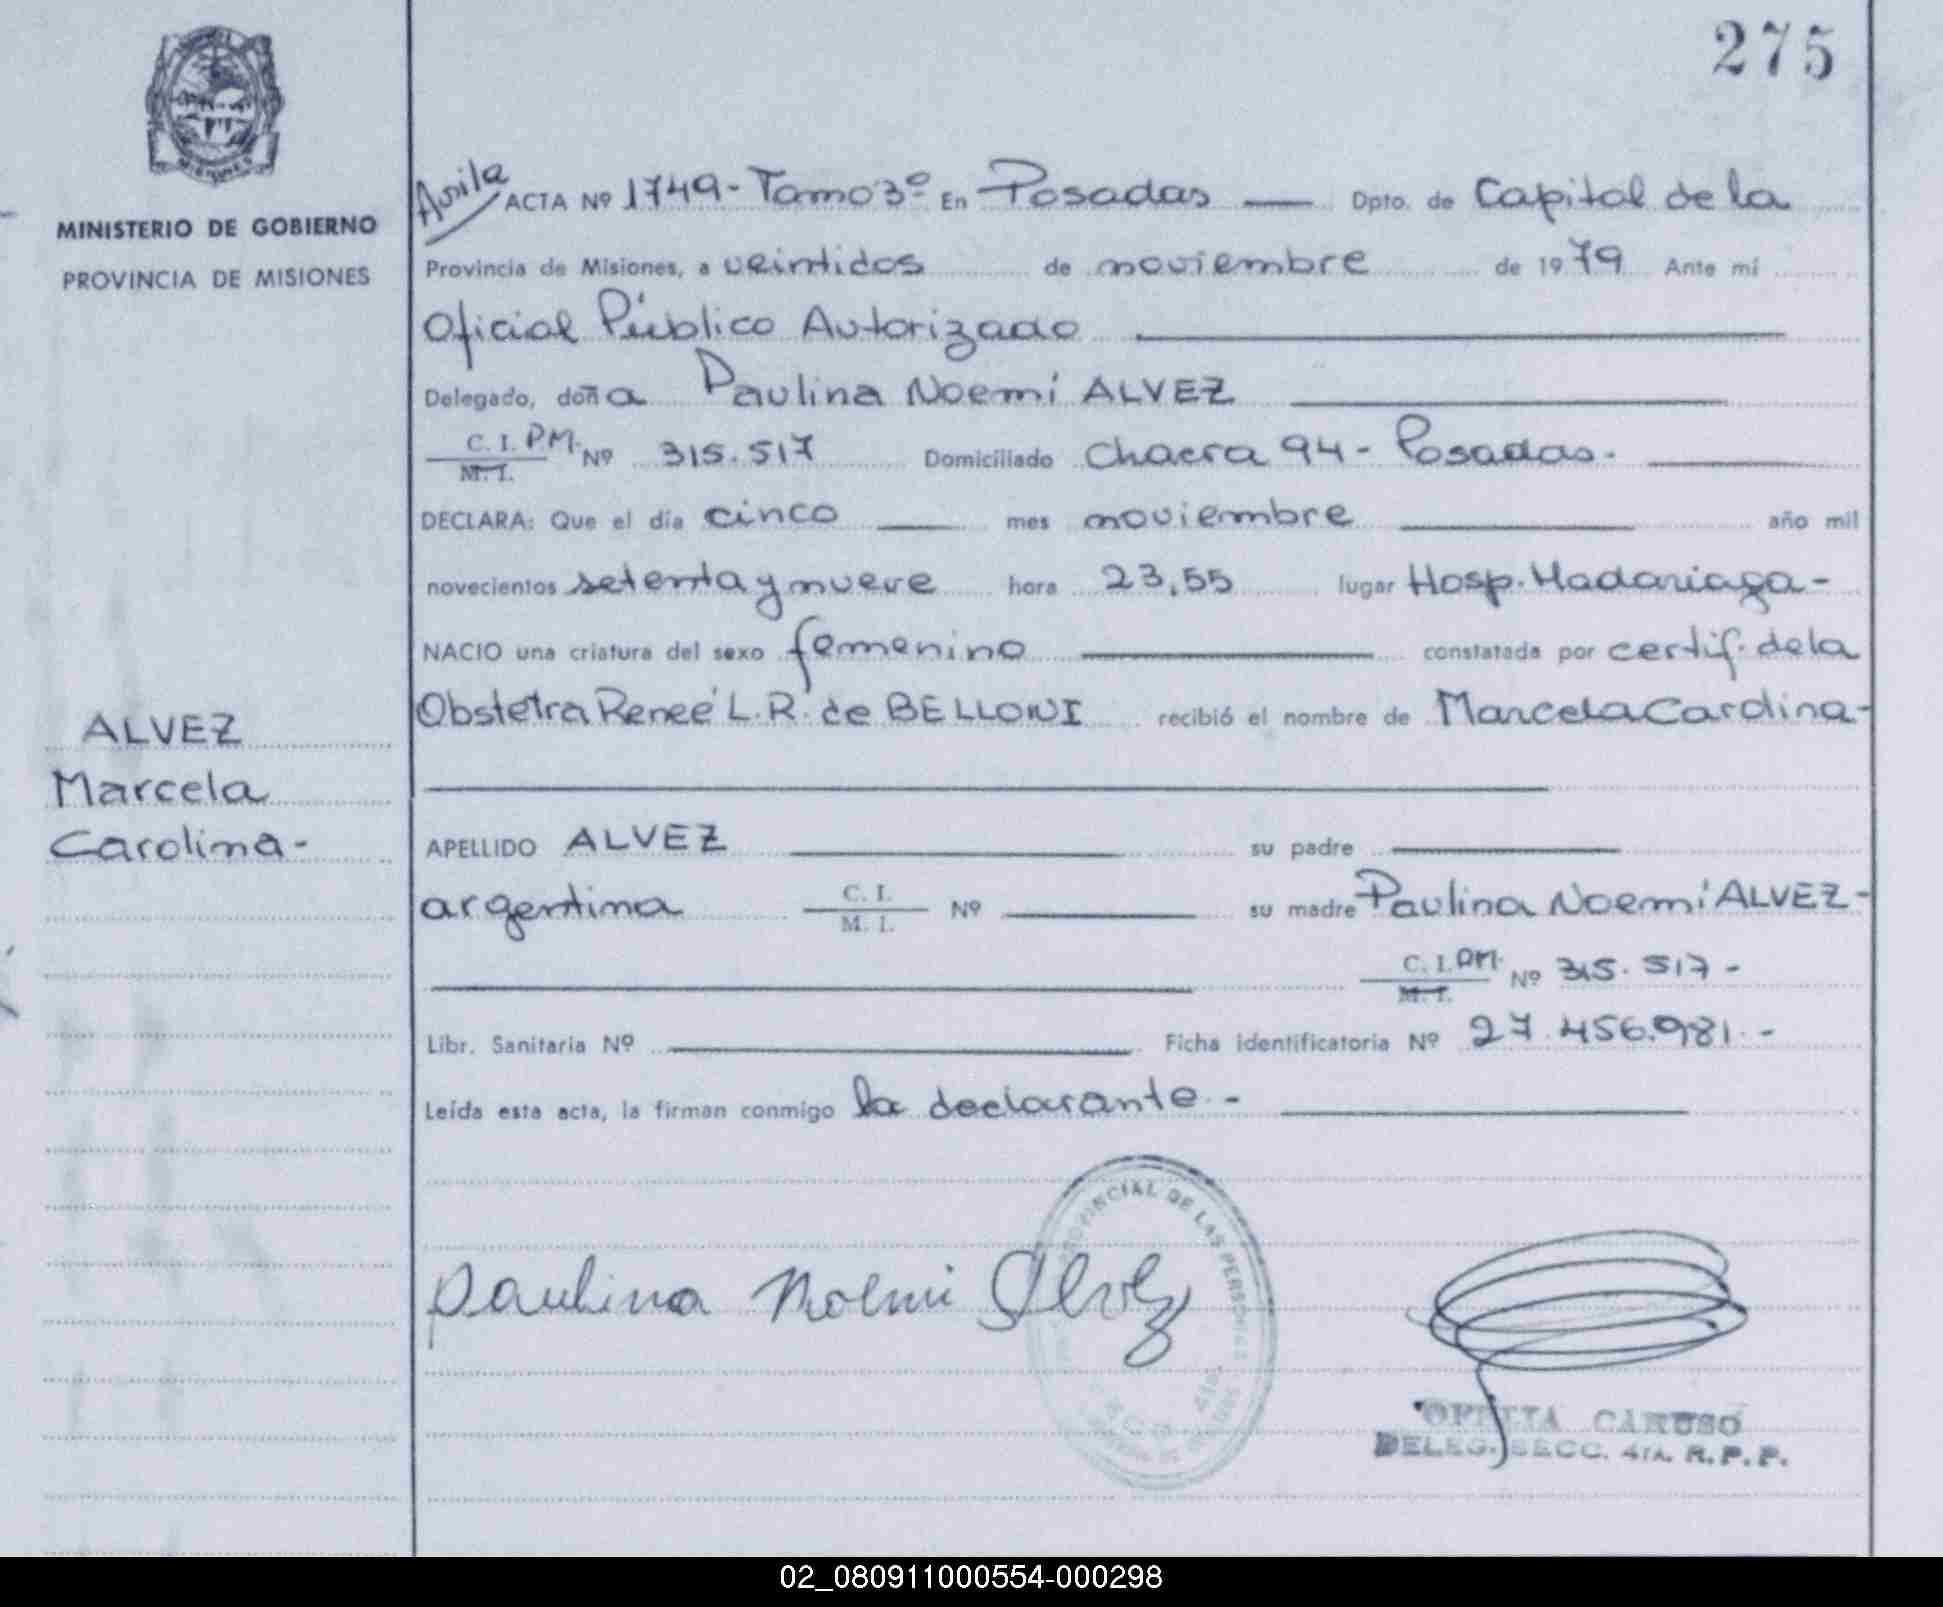 275
MISIONES
MINISTERIO DE GOBIERNO
PROVINCIA DE MISIONES
ALVEZ
Marcela
Carolina-
Avila ACTA Nº 1749- Tomo 3º En Posadas — Dpto. de Capital de la
Provincia de Misiones, a veintidos de noviembre de 1979 Ante mí
Oficial Público Autorizado
Delegado, doña Paulina Noemí ALVEZ
C. I. P.M. Nº 315.517 Domiciliado Chacra 94- Posadas.
M. I.
DECLARA: Que el día cinco — mes noviembre — año mil
novecientos setenta y nueve hora 23,55 lugar Hosp. Madariaga-
NACIO una criatura del sexo femenino — constatada por certif. de la
Obstetra Reneé L.R. de BELLONI recibió el nombre de Marcela Carolina-
APELLIDO ALVEZ — su padre —
argentina C. I. Nº — su madre Paulina Noemí ALVEZ-
M. I.
C. I. P.M. Nº 315.517-
M. I.
Libr. Sanitaria Nº — Ficha identificatoria Nº 27.456.981.-
Leída esta acta, la firman conmigo la declarante.-
PROVINCIAL DE LAS PERSONAS
Paulina Noemi Alvez
OFELIA CARUSO
DELEG. SECC. 4TA. R.P.P.
02_080911000554-000298